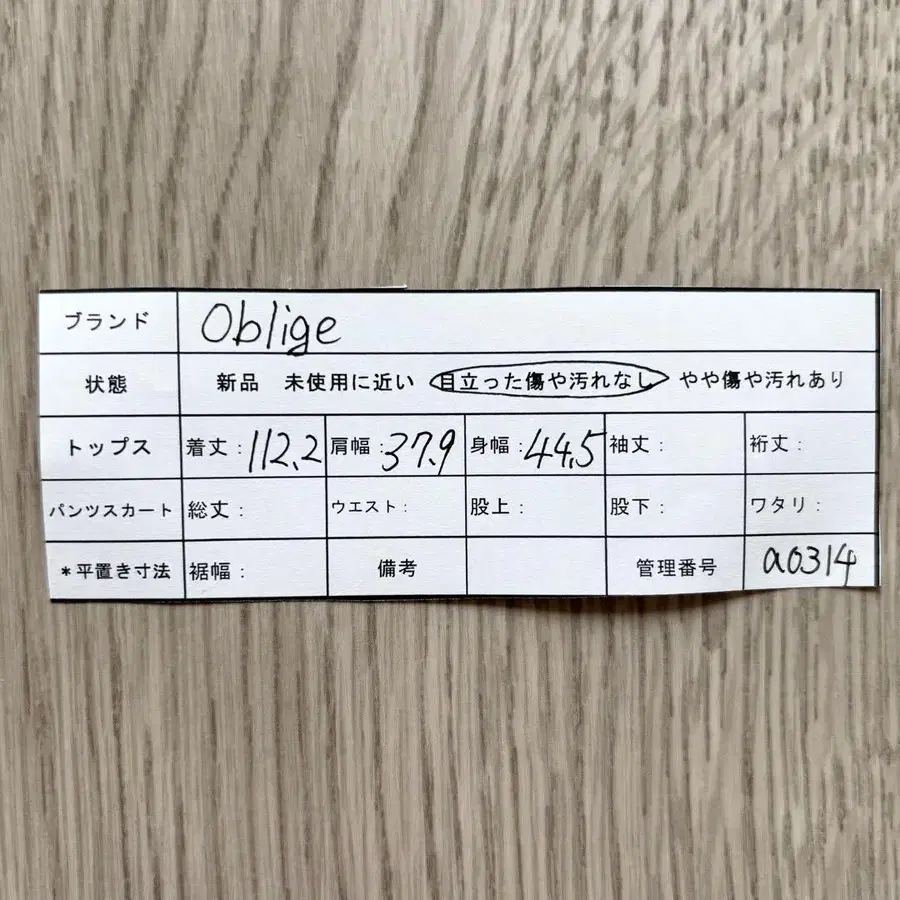 ブランド Oblige
状態 新品 未使用に近い 目立った傷や汚れなし やや傷や汚れあり
トップス 着丈：112.2 肩幅：37.9 身幅：44.5 袖丈： 裄丈：
パンツスカート 総丈： ウエスト： 股上： 股下： ワタリ：
＊平置き寸法 裾幅： 備考 管理番号 a0314